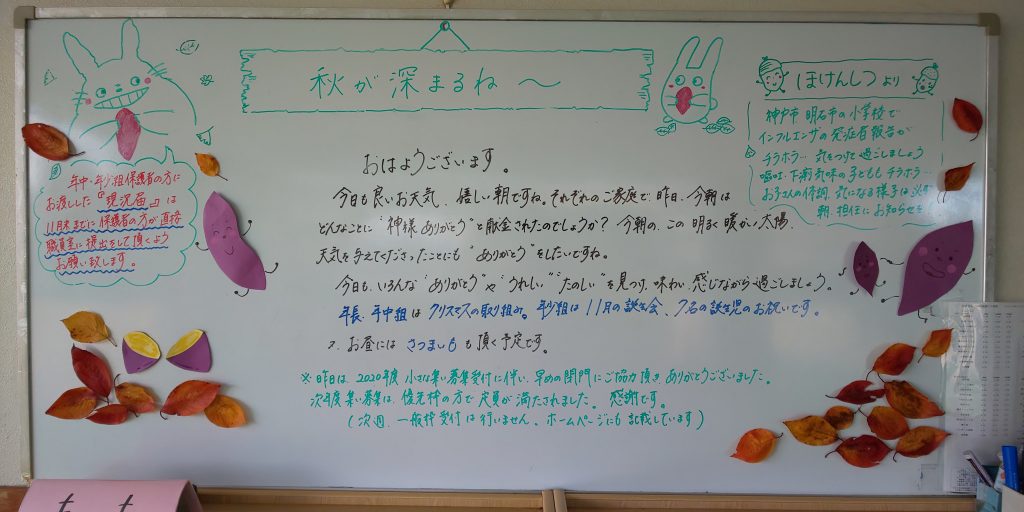 秋が深まるね～
ほけんしつより
神戸市 明石市の小学校で
インフルエンザの発症者報告が
チラホラ… 気をつけて過ごしましょう
嘔吐、下痢気味の子どももチラホラ…
お子さんの体調、気になる様子は必ず
朝、担任にお知らせを
年中・年少組保護者の方に
お渡しした『現況届』は
11月末までに保護者の方が直接
職員室に提出をして頂くよう
お願い致します。
おはようございます。
今日も良いお天気、嬉しい朝ですね。それぞれのご家庭で、昨日、今朝は
どんなことに“神様ありがとう”と献金されたのでしょうか？ 今朝の、この明るく暖かい太陽、
天気を与えてくださったことにも“ありがとう”をしたいですね。
今日も、いろんな“ありがとう”や“うれしい”“たのしい”を見つけ、味わい、感じながら過ごしましょう。
年長、年中組はクリスマスの取り組み。年少組は11月の誕生会、7名の誕生児のお祝いです。
又、お昼には さつまいもも頂く予定です。
※昨日は、2020年度 小さな集い募集受付に伴い、早めの閉門にご協力頂きありがとうございました。
次年度集い募集は、優先枠の方で定員が満たされました。感謝です。
(次週、一般枠受付は行いません、ホームページにも記載しています)